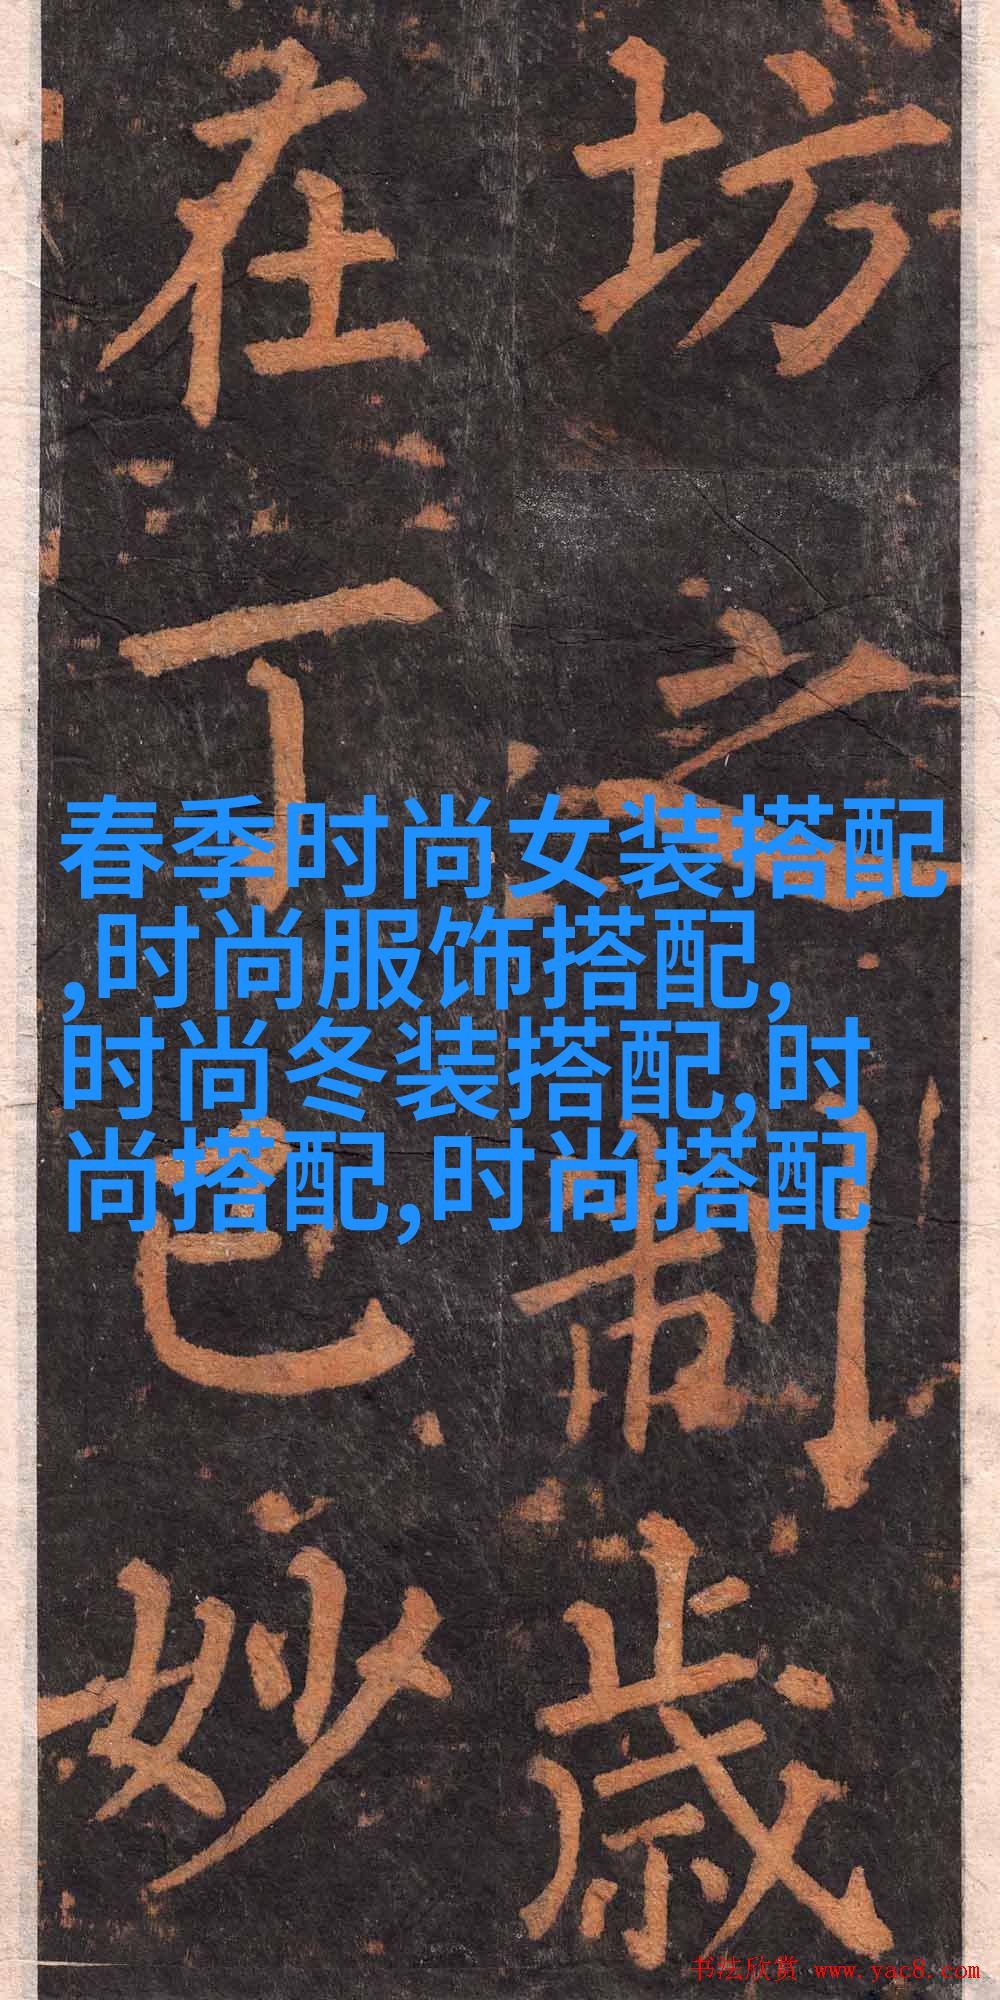 坊之制歲
在丁巳妙
春季时尚女装搭配
,时尚服饰搭配,
时尚冬装搭配,时
尚搭配,时尚搭配
书法欣赏 www.yac8.com